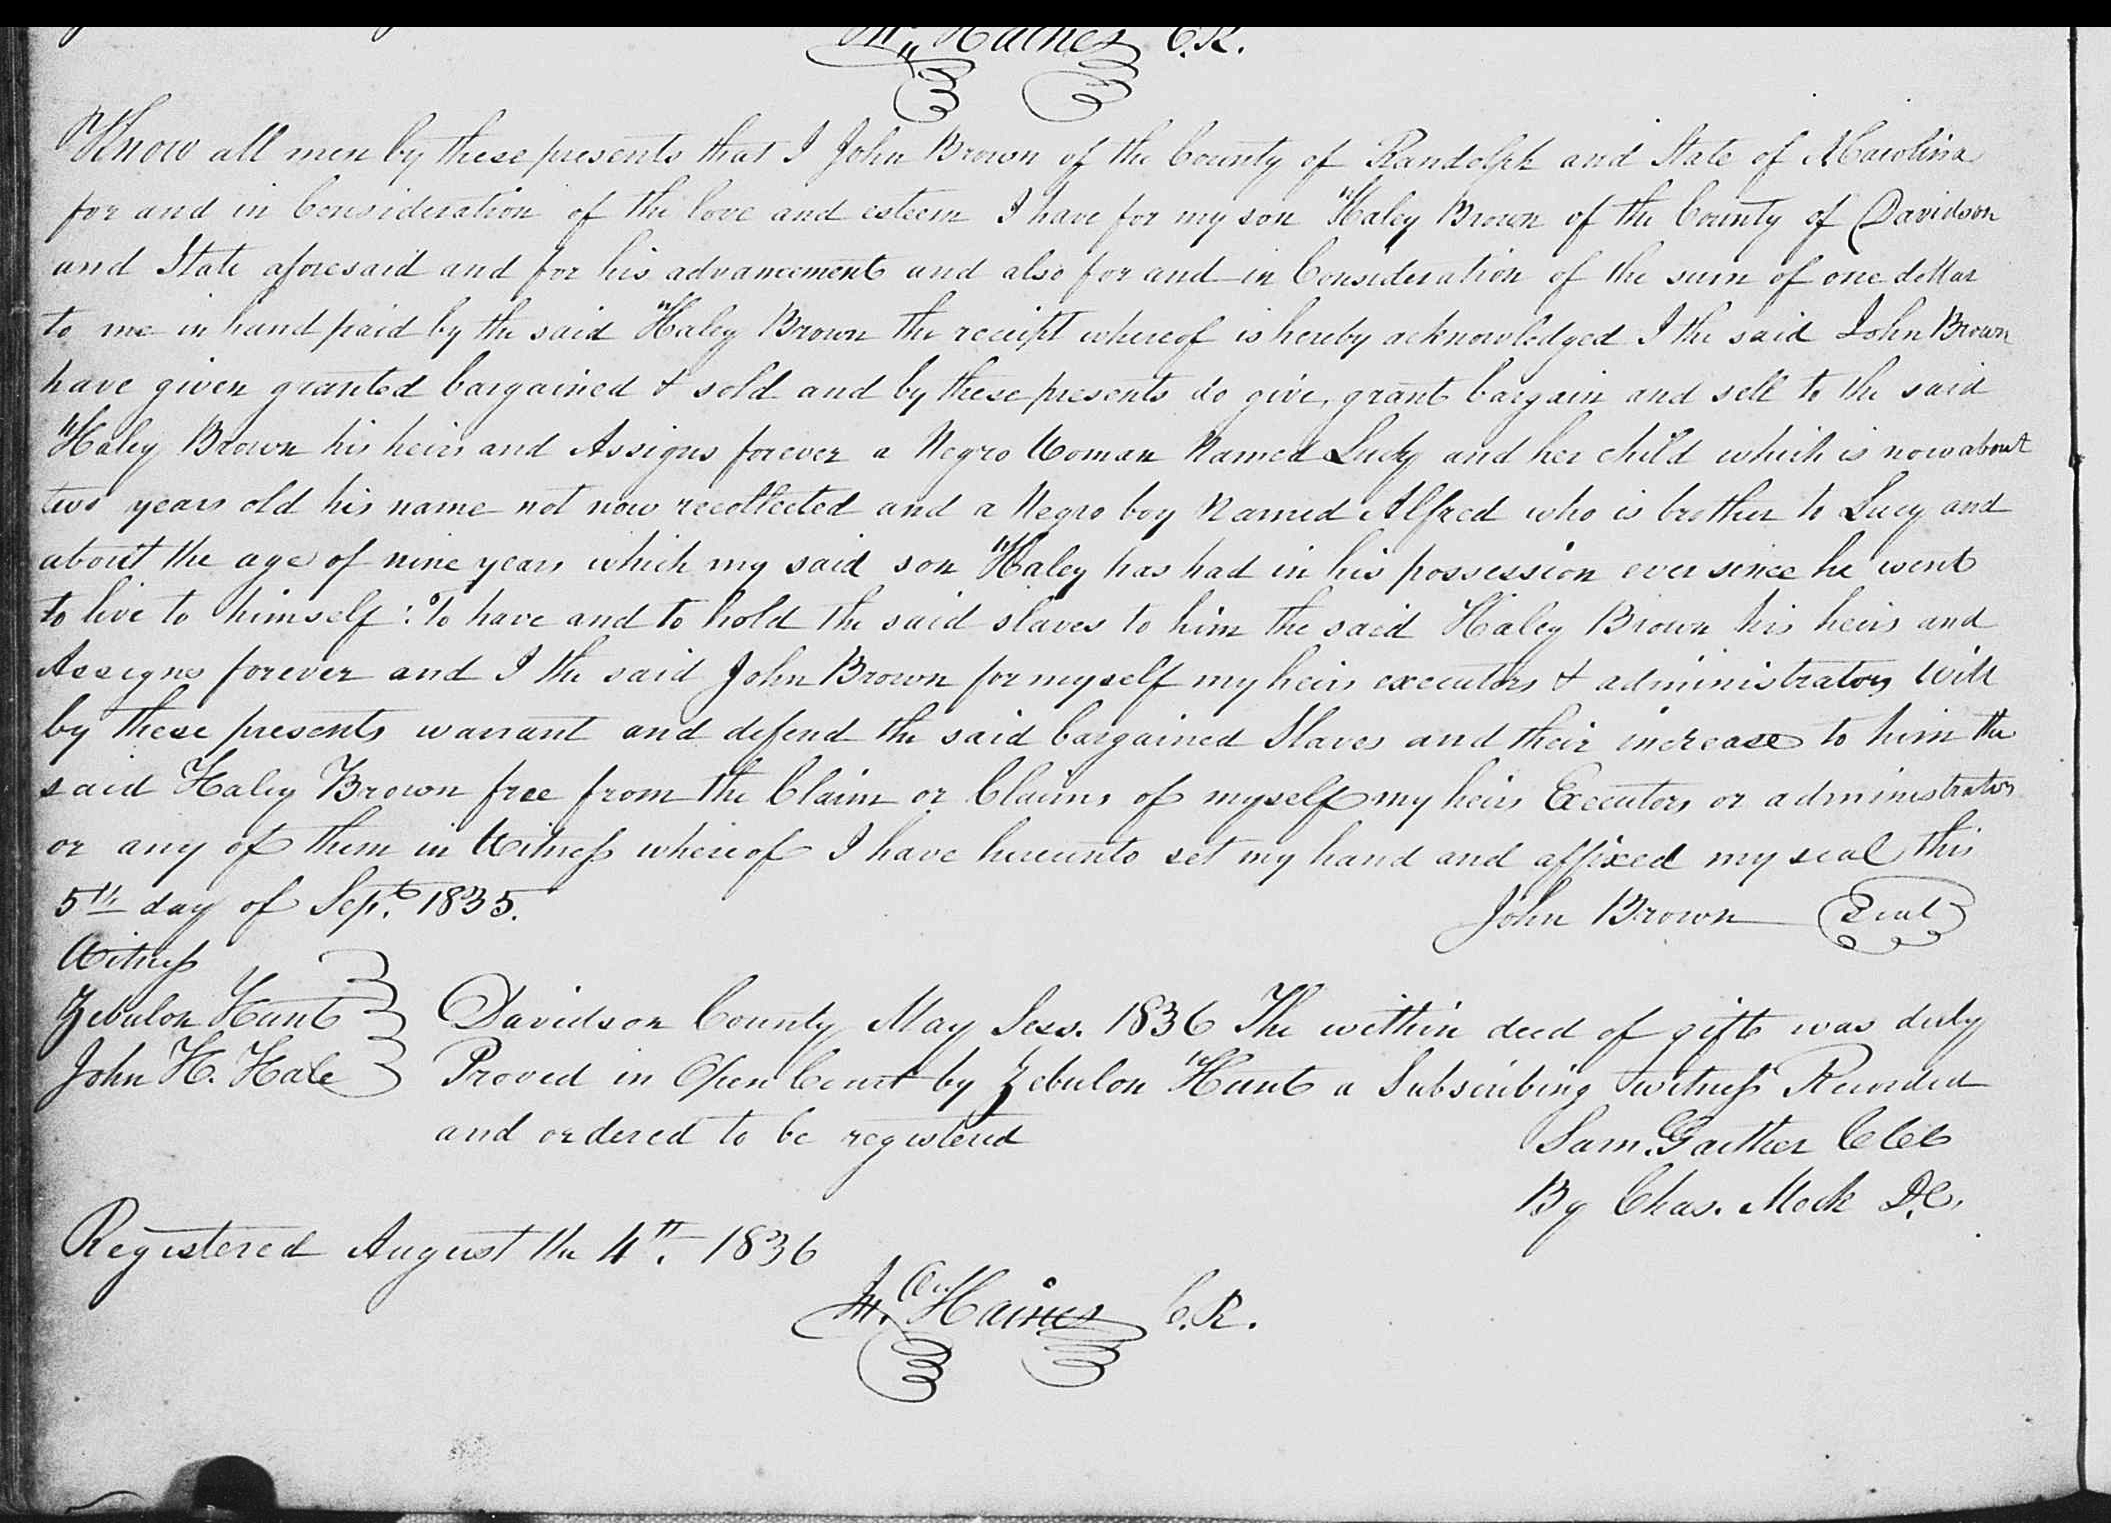 Haines C.R.
Know all men by these presents that I John Brown of the County of Randolph and State of NCarolina
for and in Consideration of the love and esteem I have for my son Haley Brown of the County of Davidson
and State aforesaid and for his advancement and also for and in Consideration of the sum of one dollar
to me in hand paid by the said Haley Brown the receipt whereof is hereby acknowledged I the said John Brown
have given granted bargained & sold and by these presents do give, grant bargain and sell to the said
Haley Brown his heirs and Assigns forever a Negro Woman Named Lucy and her child which is now about
two years old his name not now recollected and a Negro boy Named Alfred who is brother to Lucy and
about the age of nine years which my said son Haley has had in his possession ever since he went
to live to himself: To have and to hold the said slaves to him the said Haley Brown his heirs and
Assigns forever and I the said John Brown for myself my heirs executors & administrators Will
by these presents warrant and defend the said bargained Slaves and their increase to him the
said Haley Brown free from the Claim or Claims of myself my heirs Executors or administrators
or any of them in Witness whereof I have hereunto set my hand and affixed my seal this
5th day of Sept. 1835. John Brown Seal
Witness
Zebulon Hunt
John H. Hale
Davidson County May Sess. 1836 The within deed of gift was duly
Proved in Open Court by Zebulon Hunt a Subscribing witness Recorded
and ordered to be registered
Sam. Gaither Clk
By Chas. Mock D.C.
Registered August the 4th. 1836
Haines C.R.